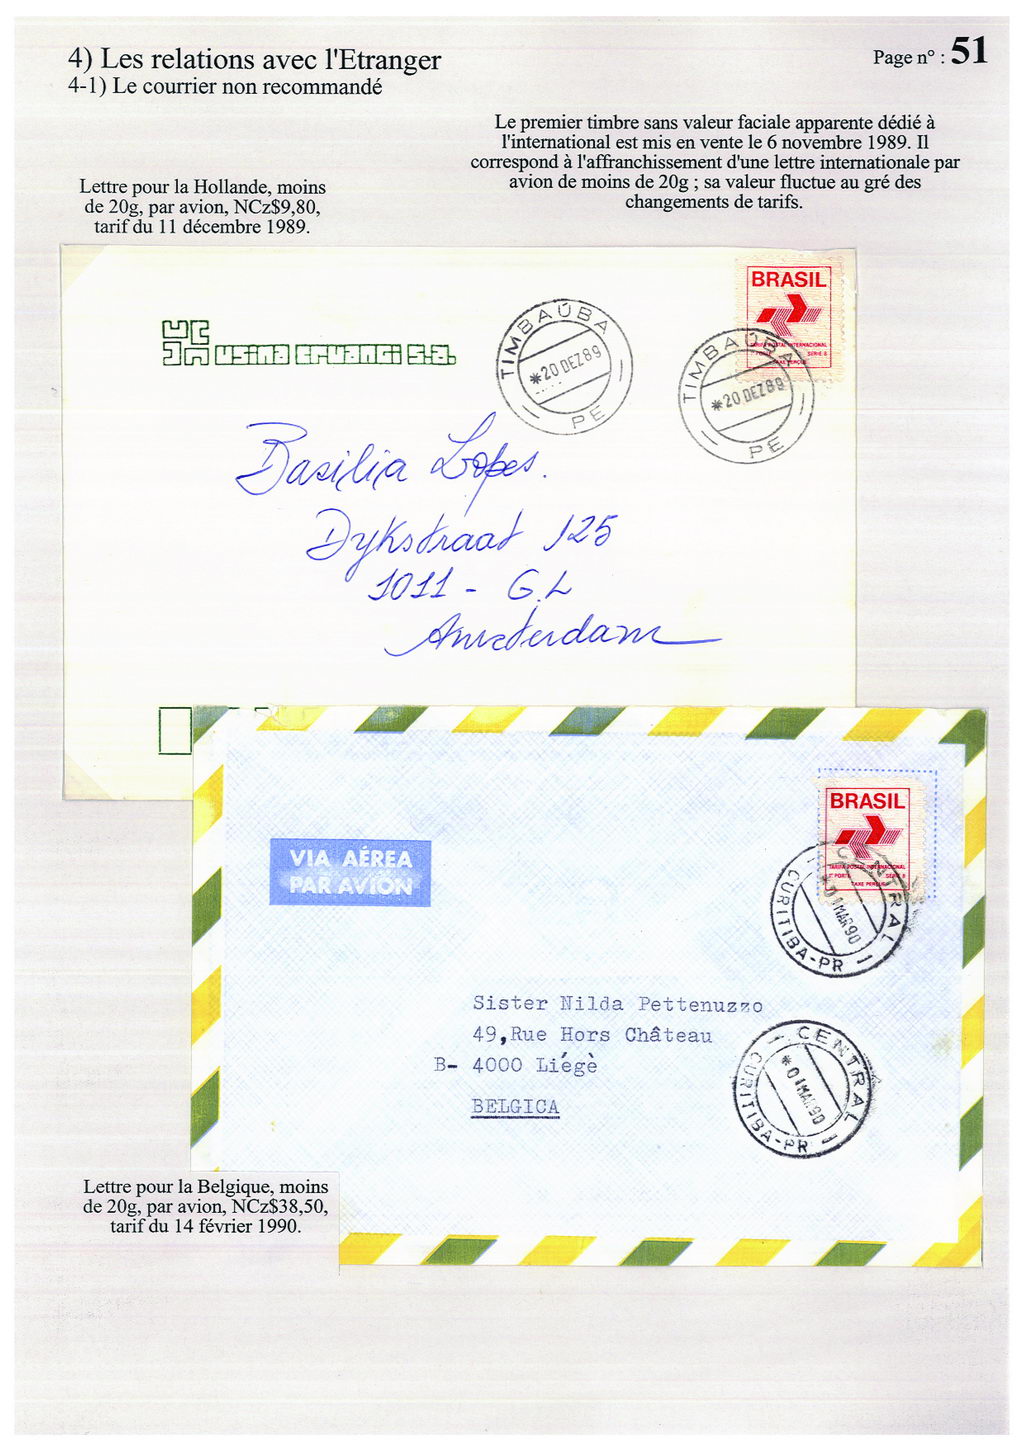 4) Les relations avec l'Etranger
4-1) Le courrier non recommandé
Page n° : 51
Le premier timbre sans valeur faciale apparente dédié à
l'international est mis en vente le 6 novembre 1989. Il
correspond à l'affranchissement d'une lettre internationale par
avion de moins de 20g ; sa valeur fluctue au gré des
changements de tarifs.
Lettre pour la Hollande, moins
de 20g, par avion, NCz$9,80,
tarif du 11 décembre 1989.
usina cruangi s.a.
TIMBAÚBA
*20 DEZ89
PE
BRASIL
TARIFA POSTAL INTERNACIONAL
SÉRIE B
TAXE PERÇUE
TIMBAÚBA
*20 DEZ89
PE
Basilia Lopes.
Dykstraat 125
1011 - G.L
Amsterdam
VIA AÉREA
PAR AVION
BRASIL
TARIFA POSTAL INTERNACIONAL
1º PORTE SÉRIE B
TAXE PERÇUE
CENTRAL
01MAR90
CURITIBA-PR
Sister Nilda Pettenuzzo
49,Rue Hors Château
B- 4000 Liégè
BELGICA
CENTRAL
*01MAR90
CURITIBA-PR
Lettre pour la Belgique, moins
de 20g, par avion, NCz$38,50,
tarif du 14 février 1990.